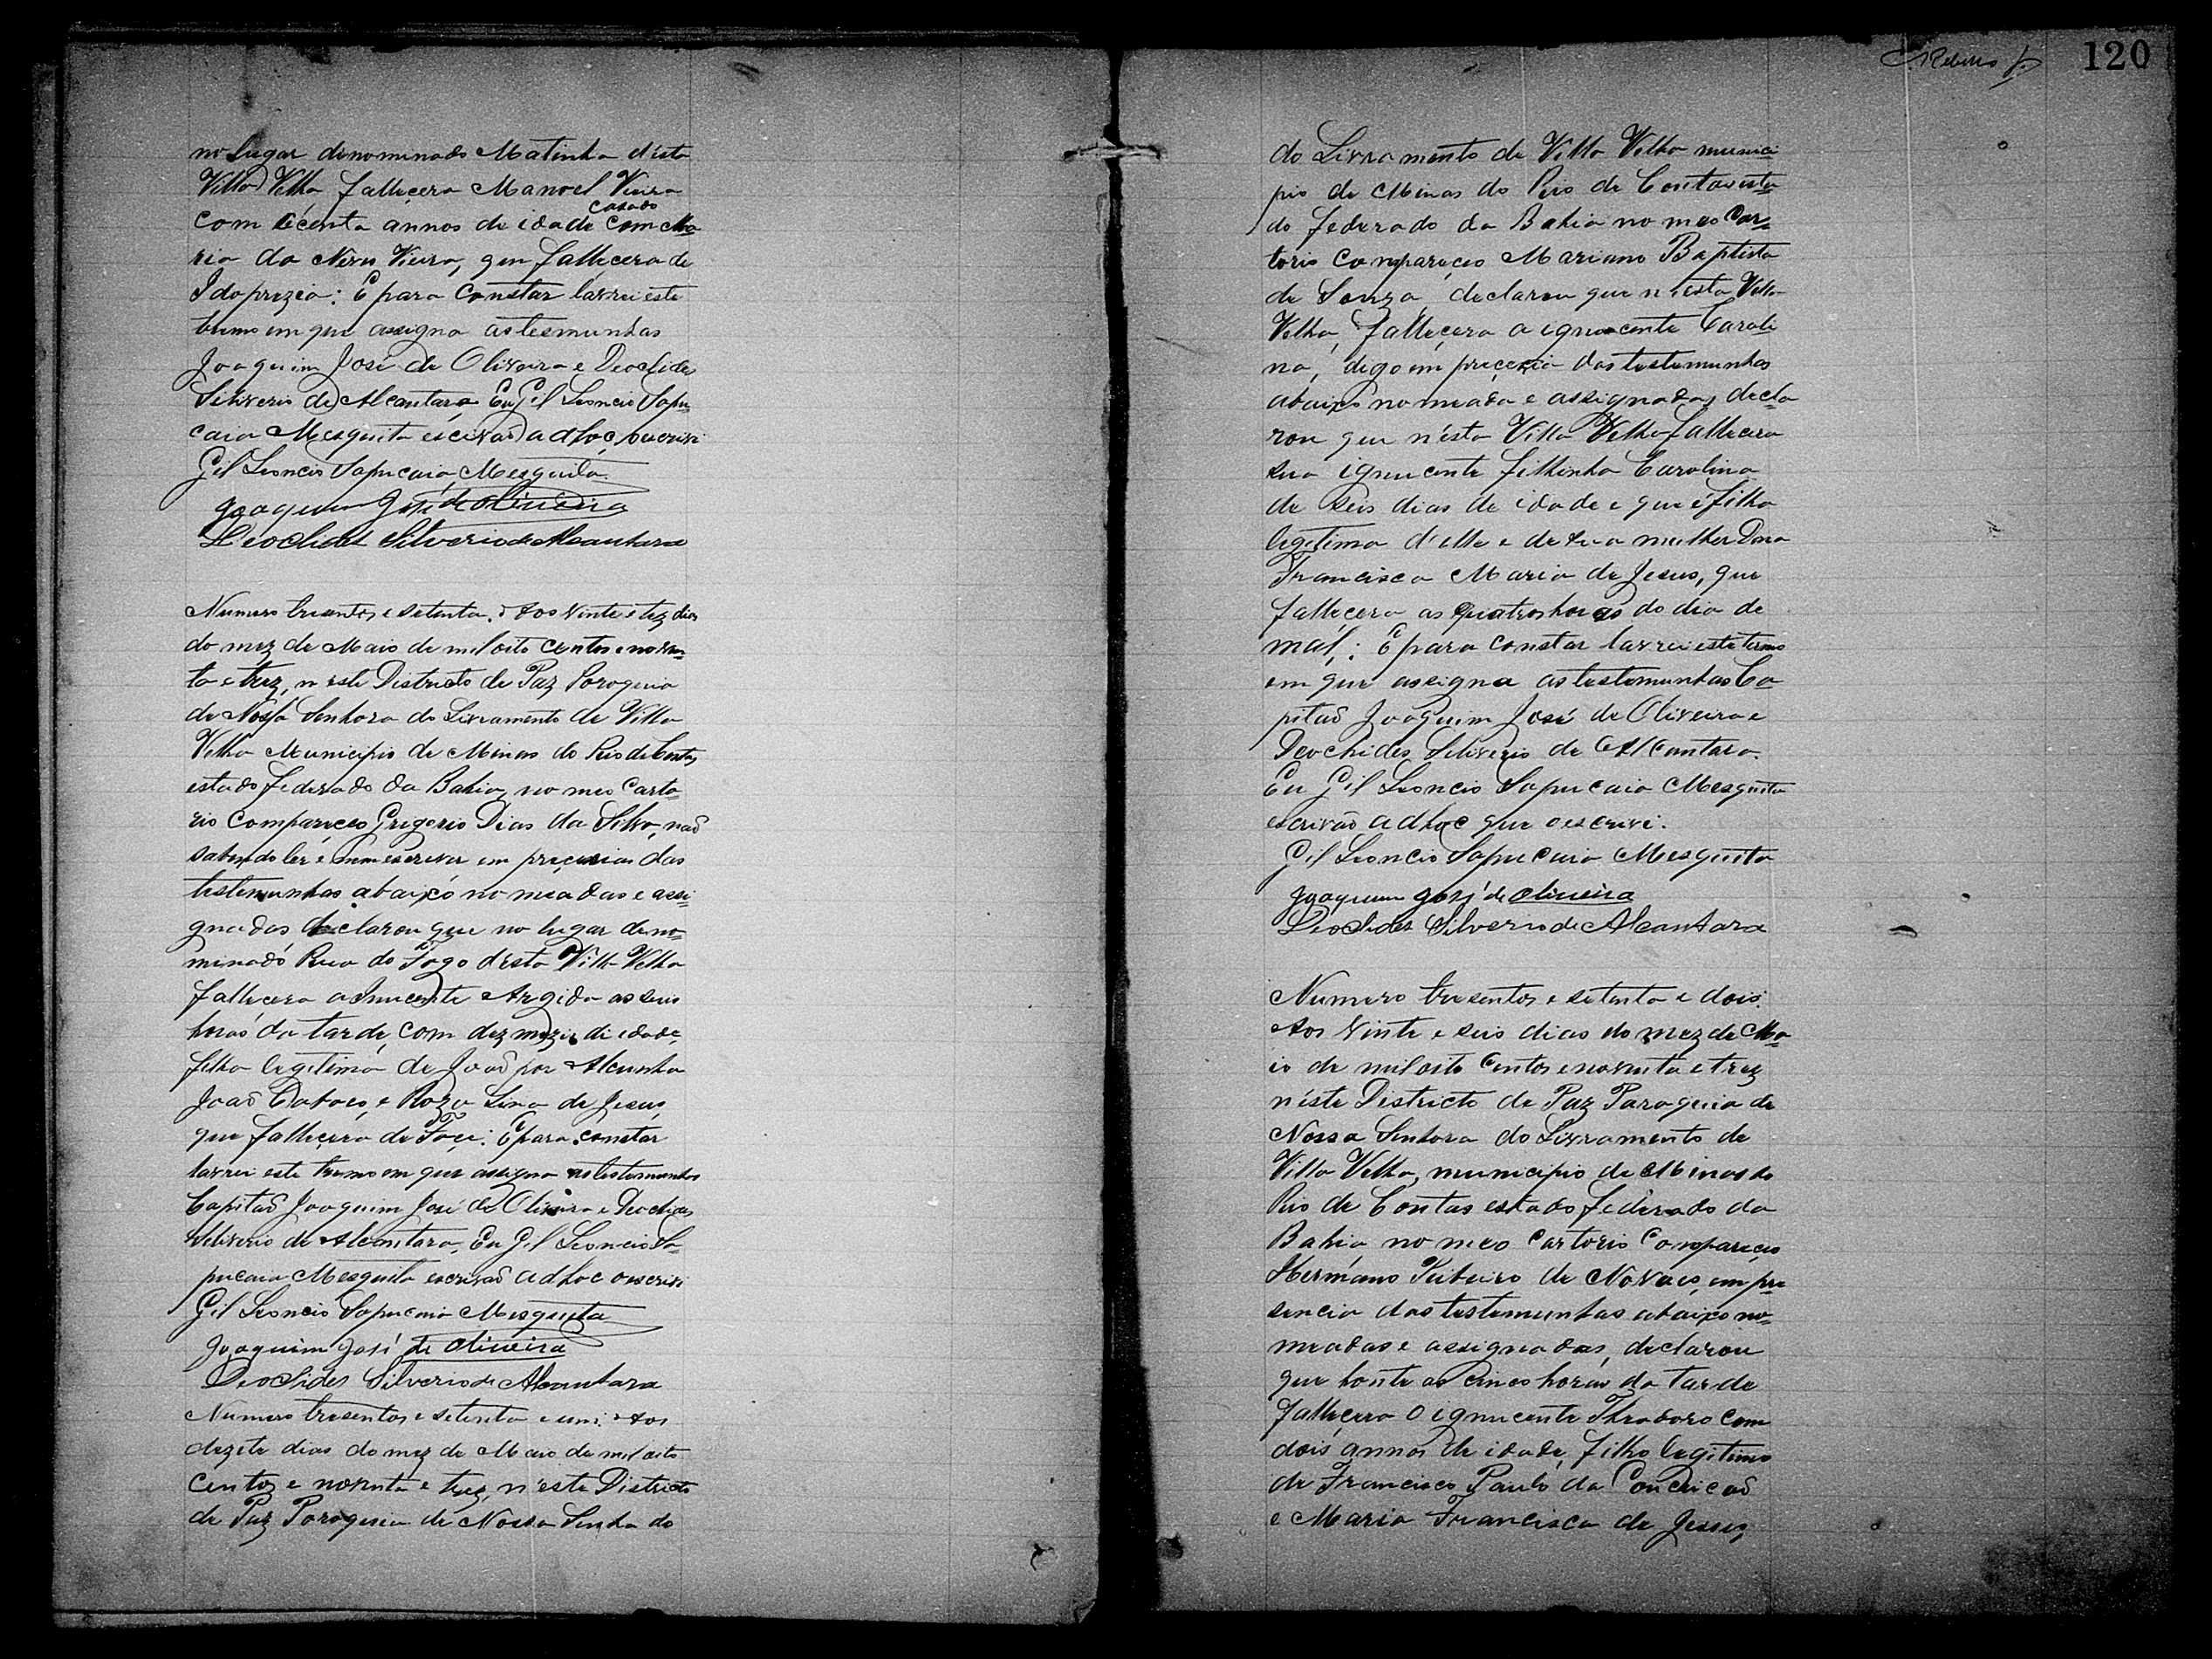 no lugar denominado Matinha d'esta
Villa Velha fallecera Manoel Vieira
com cecenta annos de idade casado com Ma=
ria da Neves Vieira, que fallecera de
Idoprezia: E para constar lavrei este
termo em que assigna as tesmunhas
Joaquim José de Oliveira e Deoclides
Silverio de Alcantara Eu Gil Leoncio Sapu=
caia Mesquita escrivaõ ad hoc, o escrivi
Gil Leoncio Sapucaia Mesquita.
Joaquim José de Oliveira
Deoclides Silverio de Alcantara
Numero tresentos e setenta. Aos vinte e trez dias
do mez de Maio de mil oito centos e noven=
ta e trez, n'este Districto de Paz Paroquia
de Nossa Senhora do Livramento de Villa
Velha Municipio de Minas do Rio de Contas,
estado federado da Bahia, no meo Carto=
rio compareceo Gregorio Dias da Silva, naõ
sabendo ler e nem escrever em preçencias das
testemunhas abaixo nomeadas e assi=
gnadas declarou que no lugar deno=
minado Rua do Fogo d'esta Villa Velha
fallecera a Innucente Argida as seis
horas da tarde, com dez mezes de idade,
filha legitima de Joaõ por Alcunha
Joaõ e Roza Lina de Jesus,
que falleçera de Foçe: E para constar
lavrei este termo em que assigna as testemunhas
Capitaõ Joaquim José de Oliveira e Deoclides
Silverio de Alcantara, Eu Gil Leoncio Sa=
pucaia Mesquita escrivaõ ad hoc o escrivi
Gil Leoncio Sapucaia Mesquita
Joaquim José de Oliveira
Deoclides Silverio de Alcantara
Numero tresentos e setenta e um: Aos
dezete dias do mez de Maio de mil oito
centos e noventa e trez, n'este Districto
de Paz Paroquia de Nossa Senha do
120
do Livramento de Villa Velha munici=
pio de Minas do Rio de Contas esta=
do federado da Bahia no meo Car=
torio compareceo Mariano Baptista
de Souza declarou que n'esta Villa
Velha, falleçera a ignucente Caroli
na, digo em preçencia das testemunhas
abaixo nomeada e assignadas, decla
rou que n'esta Villa Velha fallecera
sua ignucente filhinha Carolina
de seis dias de idade e que é filha
legitima d'elle e de sua mulher Dona
Francisca Maria de Jesus, que
falleçera as quatros horas do dia de
mál,: E para constar lavrei este termo
em que assigna as testemunhas Ca=
pitaõ Joaquim José de Oliveira e
Deoclides Silverio de Alcantara.
Eu Gil Leoncio Sapucaia Mesquita
escrivaõ ad hoc que o escrivi.
Gil Leoncio Sapucaia Mesquita
Joaquim José de Oliveira
Deoclides Silverio de Alcantara
Numero tresentos e setenta e dois.
Aos vinte e seis dias do mez de Ma=
io de mil oito centos e noventa e trez
n'éste Districto de Paz Paroquia de
Nossa Senhora do Livramento de
Villa Velha, municipio de Minas do
Rio de Contas estado federado da
Bahia no meo cartorio compareceo
Hermano Ribeiro de Novaes, em pre
sencia das testemunhas abaixo no=
meadas e assignadas, declarou
que honte as cinco horas da tarde
falleçera o ignucente Theodoro com
dois annos de idade, filho legitimo
de Francisco Paulo da Conceicaõ
e Maria Francisca de Jesus,